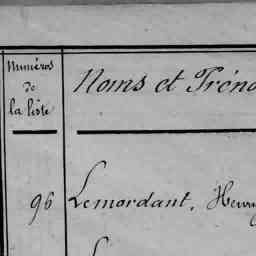 Numéros
de
la liste
Noms et Préno
96
Lemordant, Henry